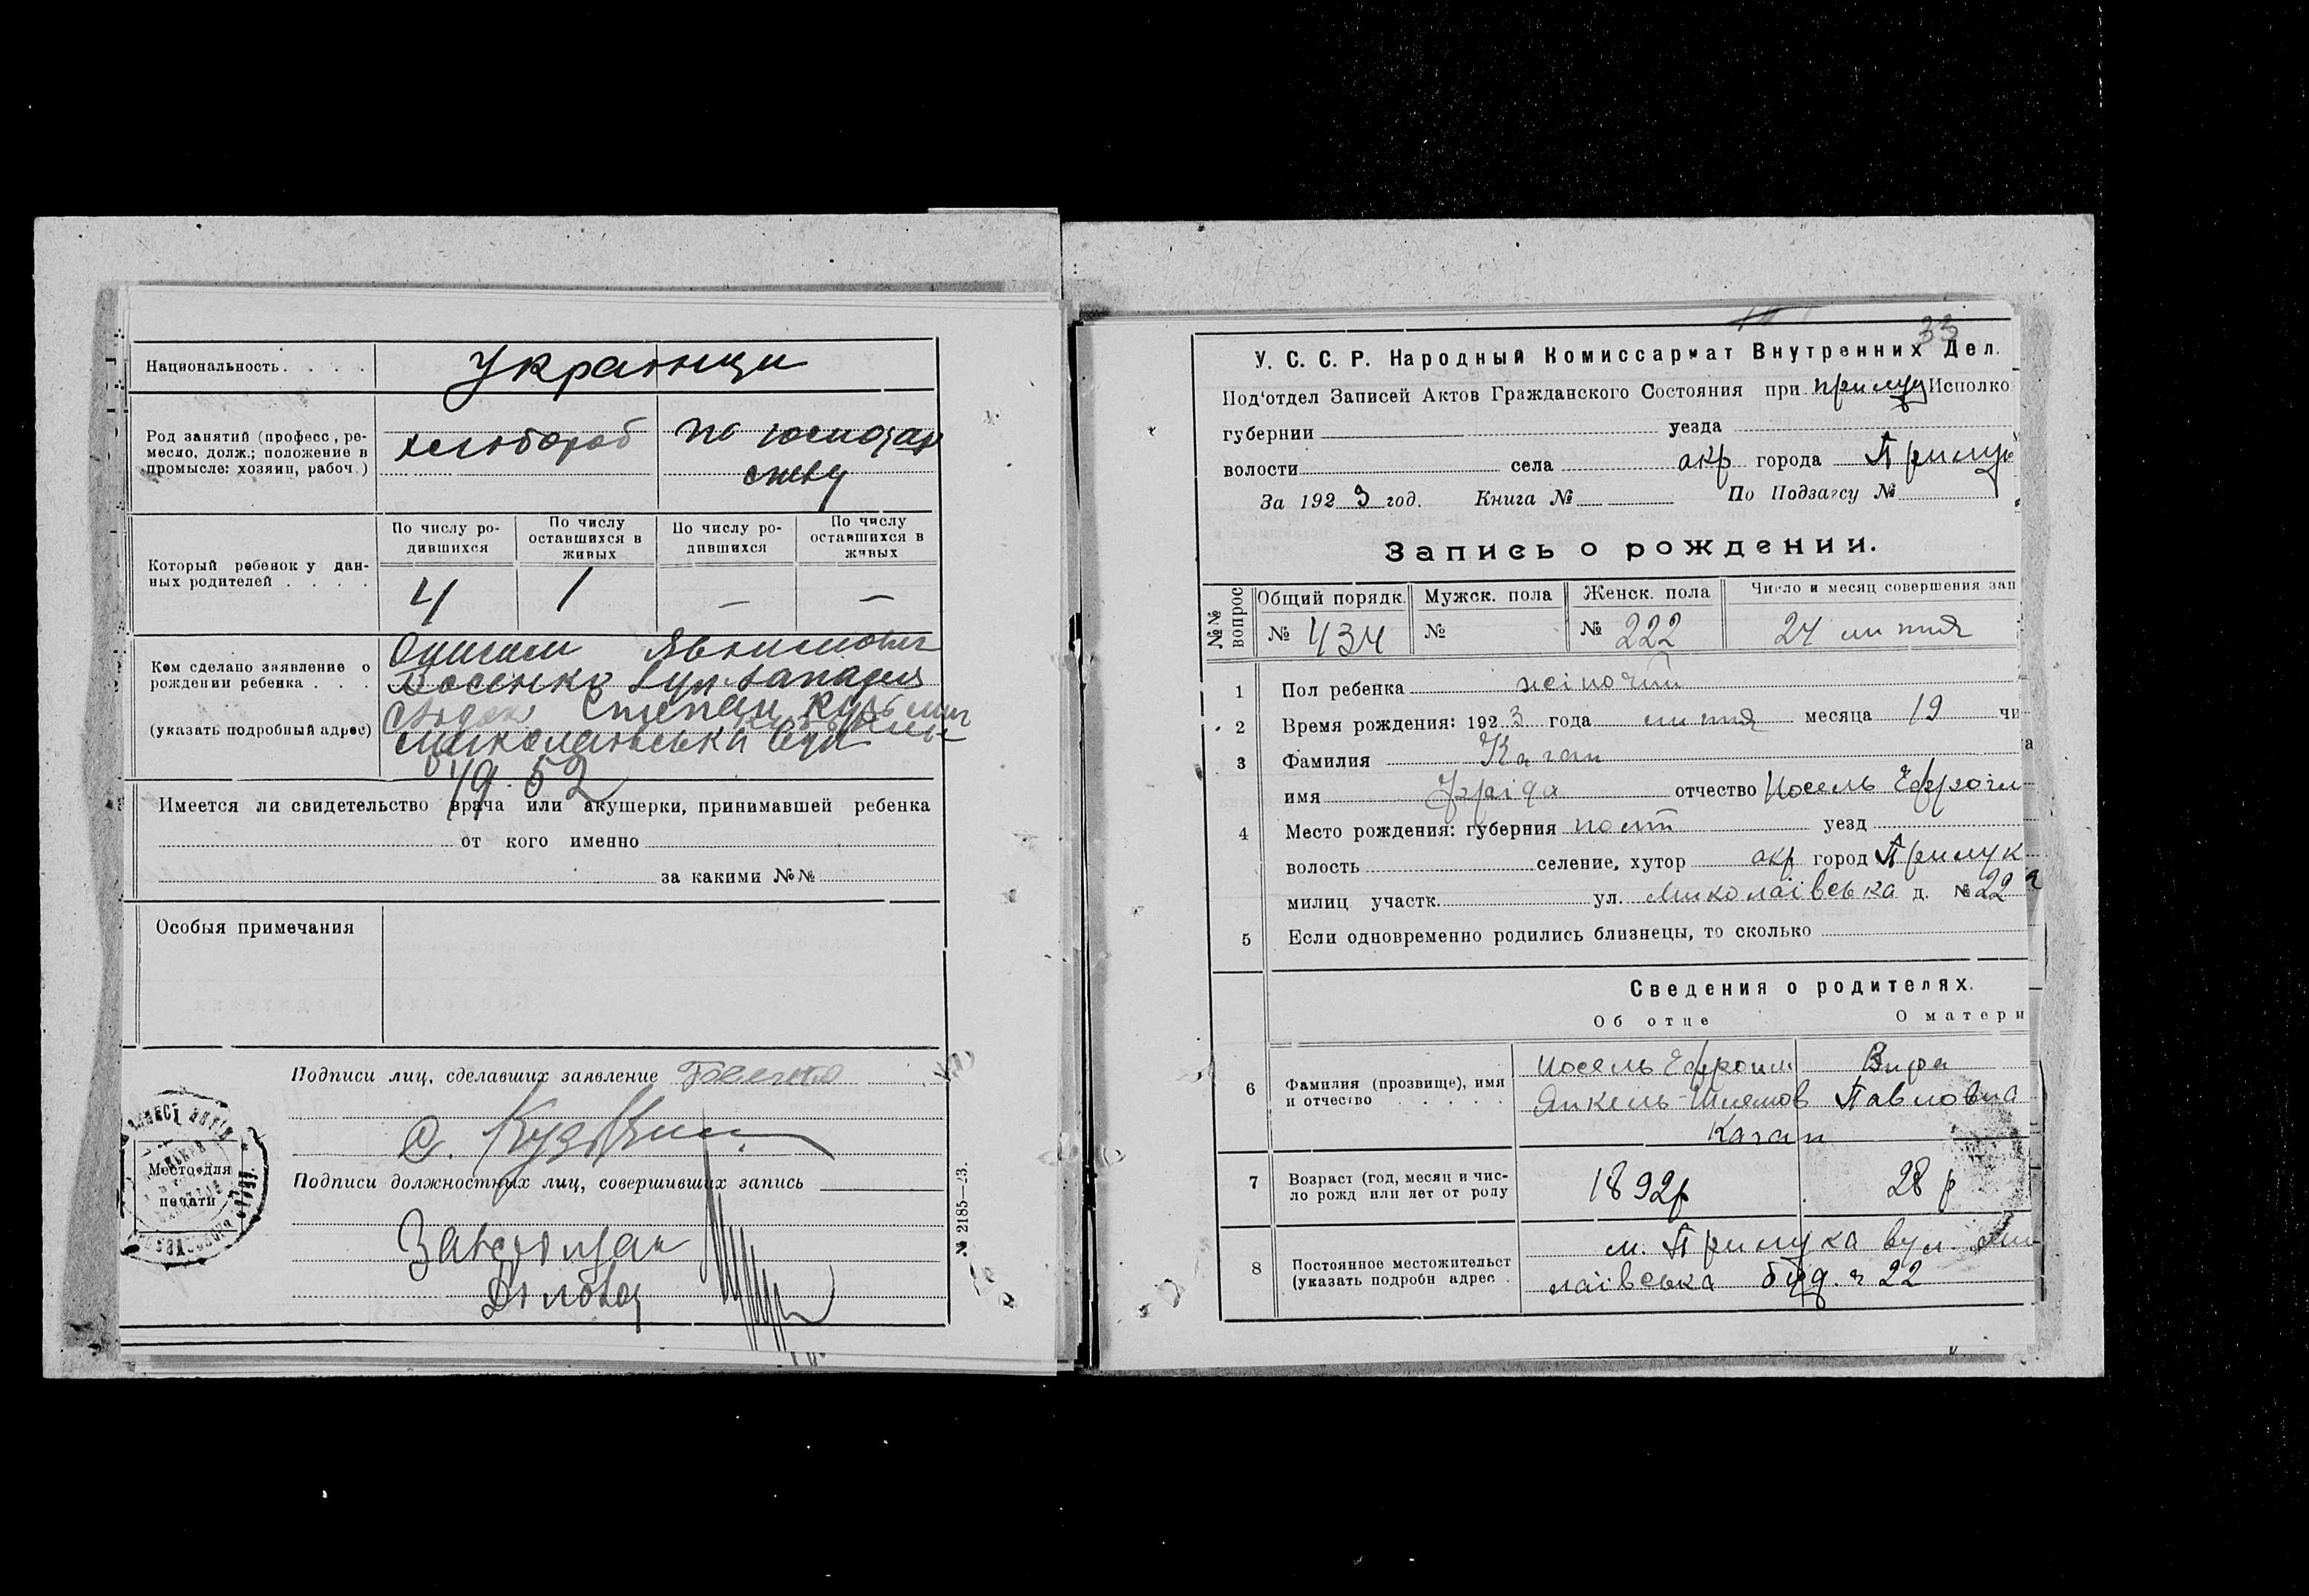 Национальность. . . . українци
Род занятий (професс, ре-
месло, долж.; положение в
промысле: хозяин, рабоч.)
хлебороб
по господар
ству
Который ребенок у дан-
ных родителей . . . .
По числу ро-
дившихся
По числу
оставшихся в
живых
По числу ро-
дившихся
По числу
оставшихся в
живых
4 1 — —
Кем сделано заявление о
рождении ребенка . . .
(указать подробный адрес)
Босенко
Степан
вул
52
Имеется ли свидетельство врача или акушерки, принимавшей ребенка
от кого именно
за какими №№
Особыя примечания
Подписи лиц, сделавших заявление
Место для
печати
Подписи должностных лиц, совершивших запись
Завідуючий
Діловод
№ 2185—23.
33
У. С. С. Р. Народный Комиссариат Внутренних Дел.
Под'отдел Записей Актов Гражданского Состояния при Прилуц Исполко
губернии уезда
волости села окр города Прилук
За 1923 год. Книга № По Подзагсу №
Запись о рождении.
№№
вопрос
Общий порядк. Мужск. пола Женск. пола Число и месяц совершения зап
№ 434 № № 222 24 липня
1 Пол ребенка жіночий
2 Время рождения: 1923 года липня месяца 19 чи
3 Фамилия Каган
имя Фріда отчество Иосель Ефроим
4 Место рождения: губерния полт уезд
волость селение, хутор окр город Прилук
милиц участк. ул. Миколаівська д. № 22
5 Если одновременно родились близнецы, то сколько
Сведения о родителях.
Об отце О матери
6 Фамилия (прозвище), имя
и отчество . . . . .
Иосель Ефроим
Янкель-Шлемов
Павловна
Каган
7 Возраст (год, месяц и чис-
ло рожд или лет от роду
1892р 28 р
8 Постоянное местожительст
(указать подробн адрес .
м. Прилука вул. Ми
лаівська буд. ч 22